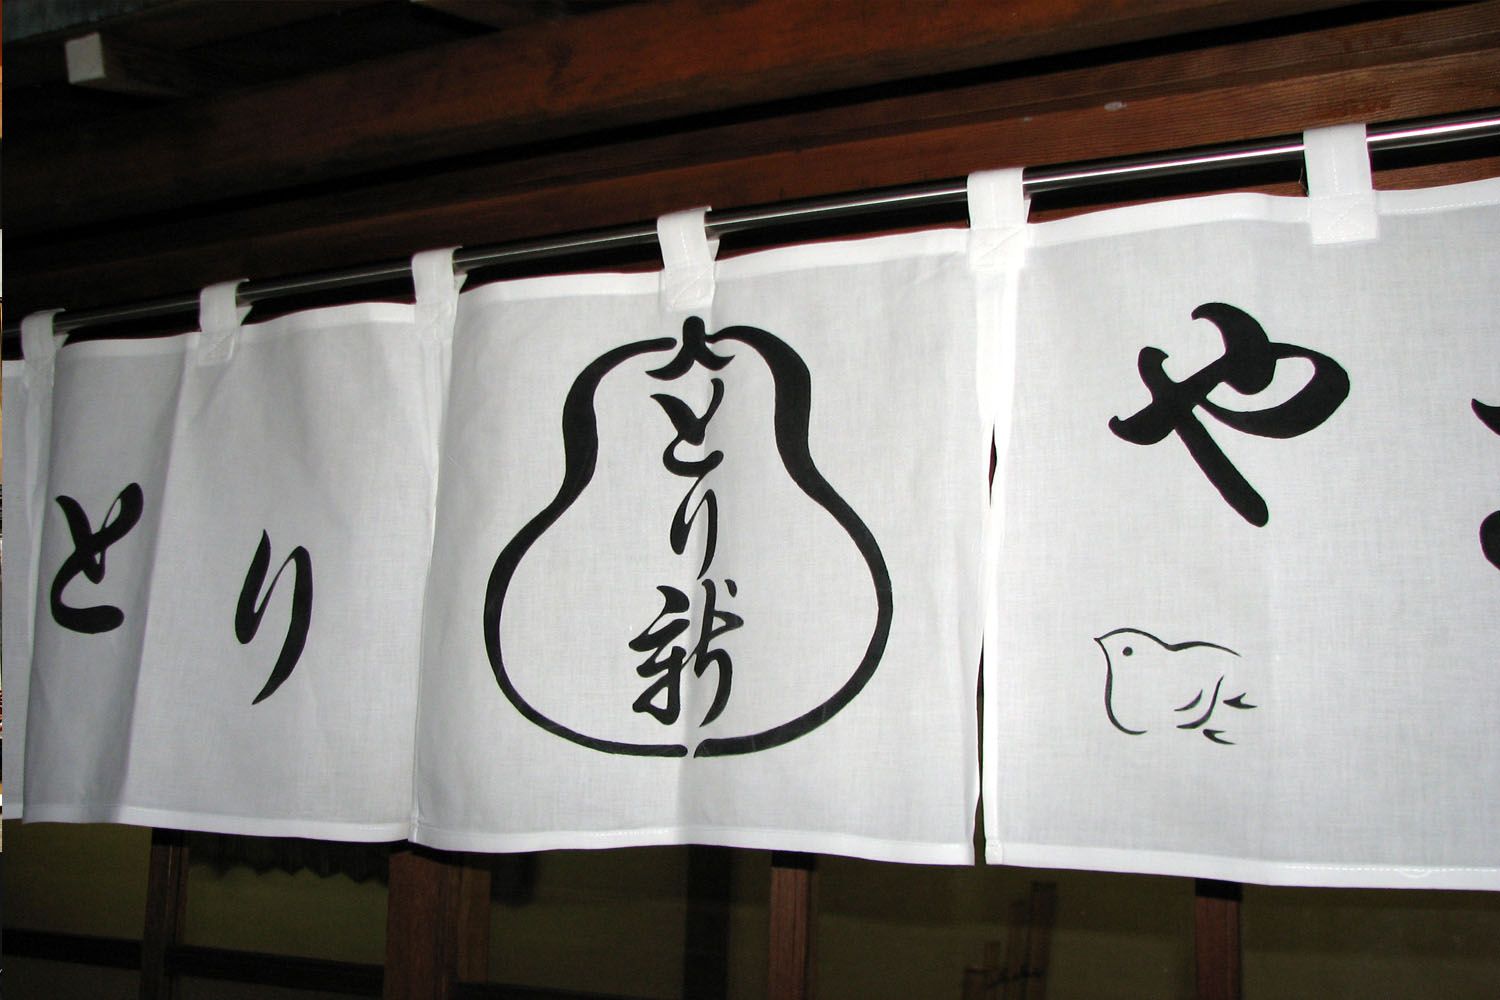 とり
とり新
や